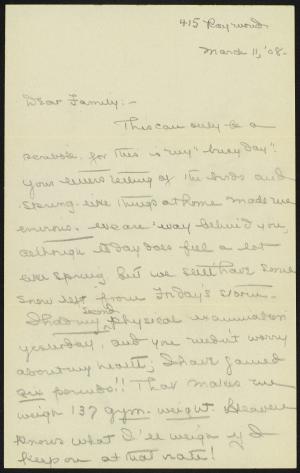 415 Raymond
March 11, '08.
Dear Family:-
This can only be a
scribble for this is my "busy day".
Your letters telling of the birds and
spring-like things at home made me
envious. We are 'way behind you,
although today does feel a bit
like spring but we still have some
snow left from Friday's storm.
I had my second physical examination
yesterday, and you needn't worry
about my health; I have gained
six pounds!! That makes me
weigh 137 gym. weight. Heaven
knows what I'll weigh if I
keep on at that rate!